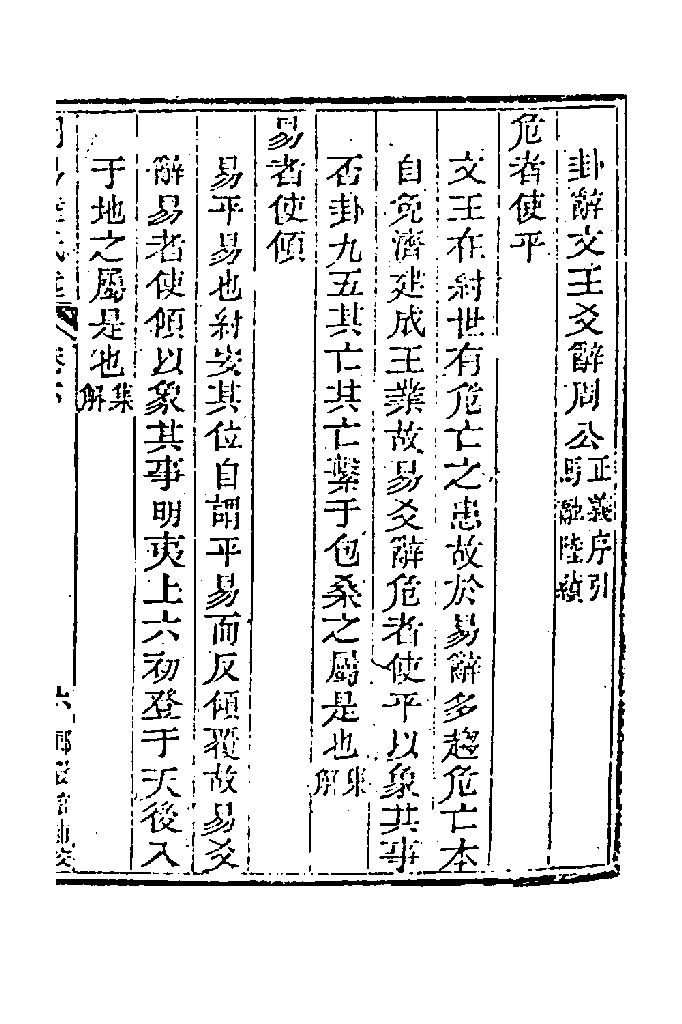 卦辭文王爻辭周公正義序引馬融陸績
危者使平
文王在紂世有危亡之患故於易辭多趨危亡本
自免濟建成王業故易爻辭危者使平以象其事
否卦九五其亡其亡繫于包桑之屬是也集解
易者使傾
易平易也紂安其位自謂平易而反傾覆故易爻
辭易者使傾以象其事明夷上六初登于天後入
于地之屬是也集解